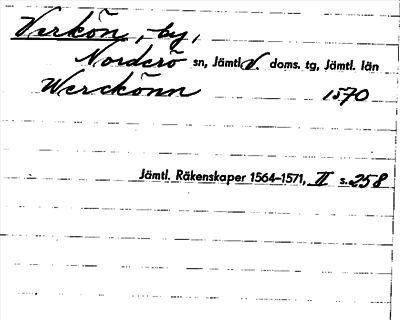 Verkön, -by,
Norderö sn, Jämtl. V. doms. tg, Jämtl. län
Werckönn 1570
Jämtl. Räkenskaper 1564–1571, II s. 258